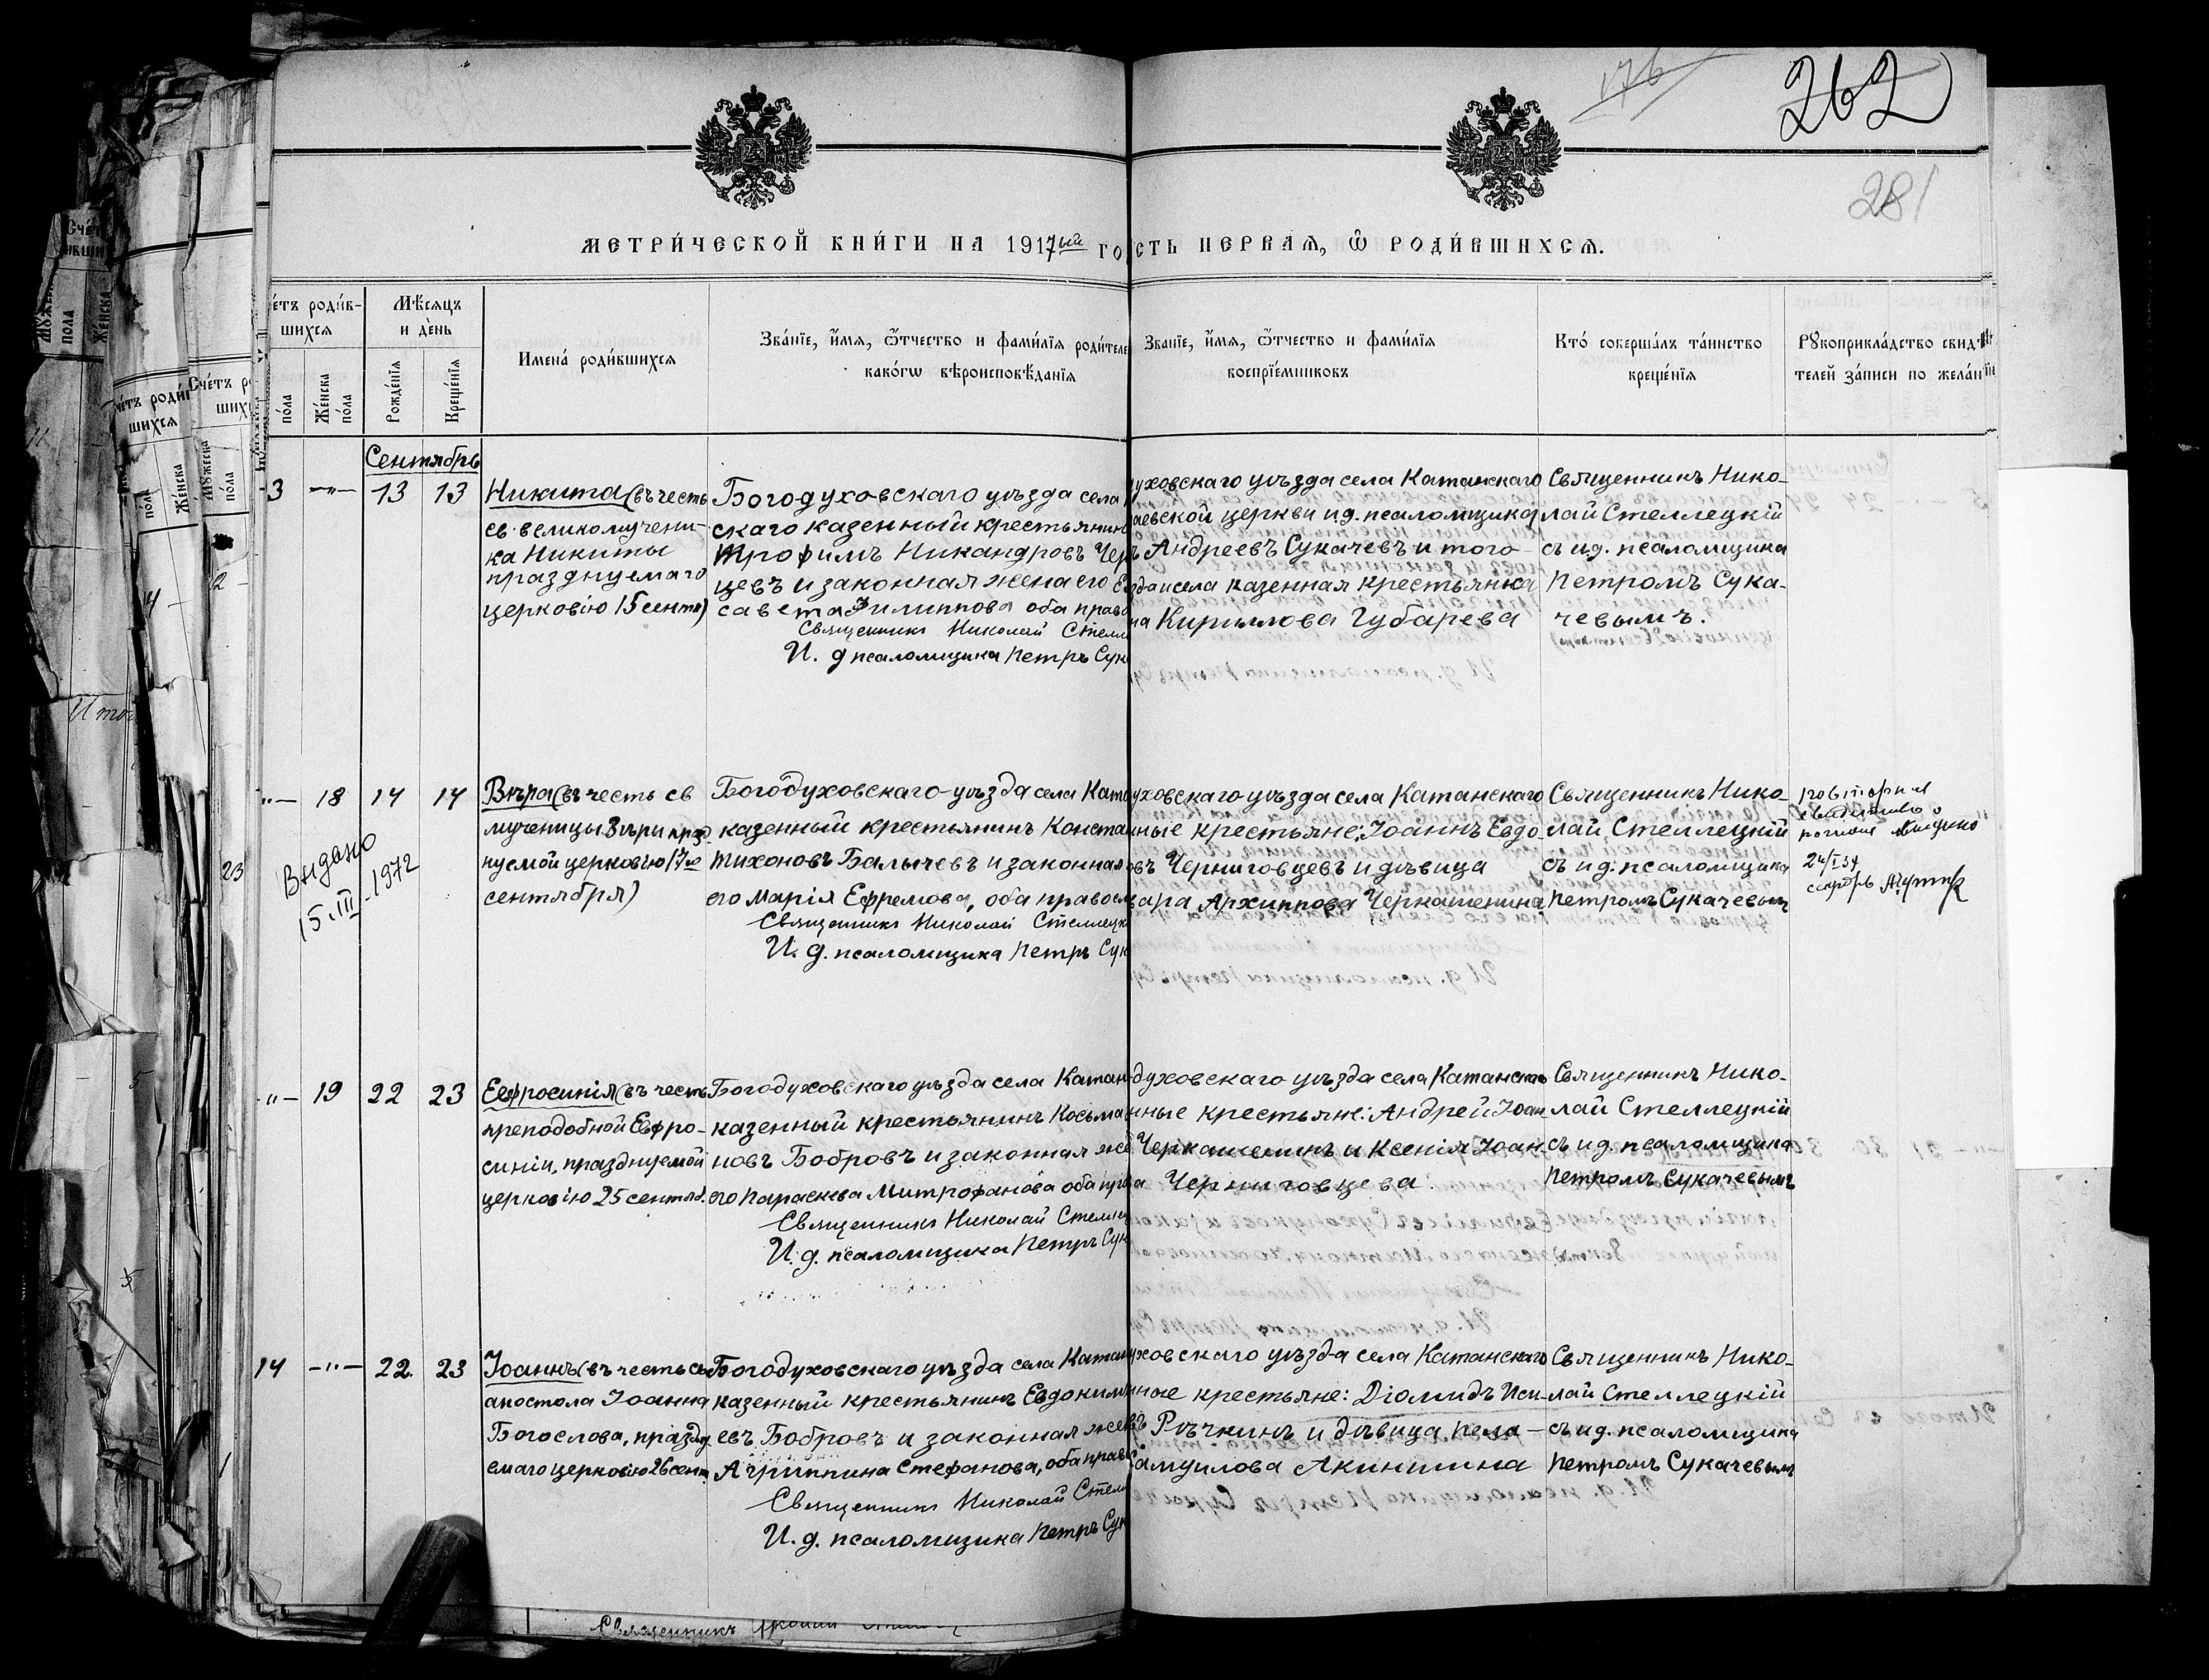 176
262
281
МЕТРИ́ЧЕСКОЙ КНИ́ГИ НА 1917ый ГО
СТЬ ПЕРВАѦ, Ѽ РОДИ́ВШИХСѦ.
е́тъ роди́в-
шихсѧ
Мѣ́сѧцъ
и де́нь
по́ла
Же́нска
по́ла
Рожде́нїѧ
Креще́нїѧ
Имена́ роди́вшихсѧ
Зва́нїе, и́мѧ, ѻ҆́тчество и фами́лїѧ роди́теле
како́гѡ вѣроисповѣ́данїѧ
Зва́нїе, и́мѧ, ѻ҆́тчество и фами́лїѧ
воспрїе́мниковъ
Кто́ соверша́лъ та́инство
креще́нїѧ
Рꙋкоприкла́дство свидѣ́
телей за́писи по жела́н
Сентябрь
3 -"- 13 13
Никита (въ честь
св. великомучени-
ка Никиты
празднуемаго
церковію 15 сент)
Богодуховскаго уѣзда села
скаго казенный крестьянинъ
Трофимъ Никандровъ Чер
цевъ и законная жена его Е
савета Филиппова оба право
Священникъ Николай Стелл
И. д псаломщика Петръ Сук
уховскаго уѣзда села Катанскаго
аевской церкви и.д. псаломщика
ъ Андреевъ Сукачевъ и того
зда и села казенная крестьянка
на Кириллова Губарева
Священникъ Нико-
лай Стеллецкій
съ и.д. псаломщика
Петромъ Сука-
чевымъ.
"- 18 14 14
Видано
15.III.1972
Вѣра (въ честь св
мученицы Вѣры праз.
нуемой церковію 17го
сентября)
Богодуховскаго уѣзда села Ката
казенный крестьянинъ Конста
Тихоновъ Балычевъ и законная
его Марія Ефремова, оба правосл
Священникъ Николай Стеллецк
И. д. псаломщика Петръ Сук
уховскаго уѣзда села Катанскаго
нные крестьяне: Іоаннъ Евдо
овъ Черниговцевъ и дѣвица
вара Архиппова Черкашенина
Священникъ Нико-
лай Стеллецкій
съ и.д. псаломщика
Петромъ Сукачевым
24/I 34
-"- 19 22 23
Евфросинія (въ честь
преподобной Евфро-
синіи, празднуемой
церковію 25 сентяб.
Богодуховскаго уѣзда села Катан
казенный крестьянинъ Косьма
новъ Бобровъ и законная же
его Параскева Митрофанова оба пра
Священникъ Николай Стеллец
И. д. псаломщика Петръ Сук
духовскаго уѣзда села Катанскаго
нные крестьяне: Андрей Іоан-
Черкашенинъ и Ксенія Іоан-
а Черниговцева.
Священникъ Нико-
лай Стеллецкій
съ и д. псаломщика
Петромъ Сукачевымъ
14 -"- 22. 23
Іоаннъ (въ честь св
апостола Іоанна
Богослова, праздну
емаго церковію 26 сент.
Богодуховскаго уѣзда села Катан
казенный крестьянинъ Евдоким
евъ Бобровъ и законная жен
Агриппина Стефанова, оба прав
Священникъ Николай Стелл
И. д. псаломщика Петръ Сук
уховскаго уѣзда села Катанскаго
нное крестьяне: Діомидъ Иси-
въ Рѣчкинъ и дѣвица Пела-
Самуилова Акиншина
Священникъ Нико-
лай Стеллецкій
съ и д. псаломщика
Петромъ Сукачевым